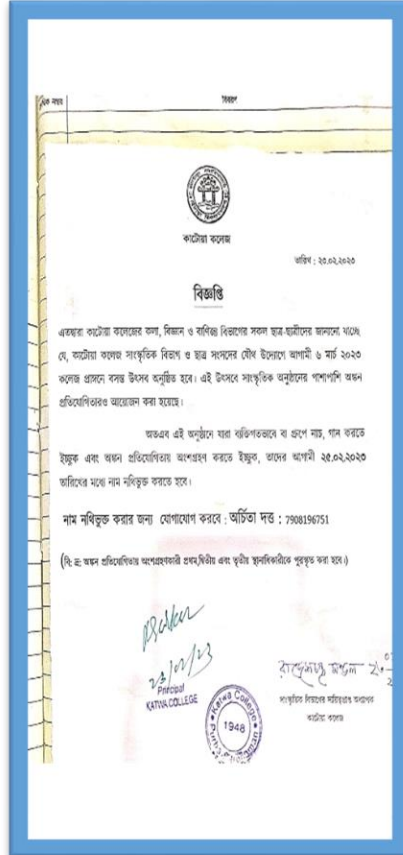 বিবরণ
কাটোয়া কলেজ
তারিখ : ২৩.০২.২০২৩
বিজ্ঞপ্তি
এতদ্বারা কাটোয়া কলেজের কলা, বিজ্ঞান ও বাণিজ্য বিভাগের সকল ছাত্র-ছাত্রীদের জানানো যাচ্ছে
যে, কাটোয়া কলেজ সাংস্কৃতিক বিভাগ ও ছাত্র সংসদের যৌথ উদ্যোগে আগামী ৬ মার্চ ২০২৩
কলেজ প্রাঙ্গনে বসন্ত উৎসব অনুষ্ঠিত হবে। এই উৎসবে সাংস্কৃতিক অনুষ্ঠানের পাশাপাশি অঙ্কন
প্রতিযোগিতারও আয়োজন করা হয়েছে।
অতএব এই অনুষ্ঠানে যারা ব্যক্তিগতভাবে বা গ্রুপে নাচ, গান করতে
ইচ্ছুক এবং অঙ্কন প্রতিযোগিতায় অংশগ্রহণ করতে ইচ্ছুক, তাদের আগামী ২৫.০২.২০২৩
তারিখের মধ্যে নাম নথিভুক্ত করতে হবে।
নাম নথিভুক্ত করার জন্য যোগাযোগ করবে : অর্চিতা দত্ত : 7908196751
(বি: দ্র: অঙ্কন প্রতিযোগিতায় অংশগ্রহণকারী প্রথম,দ্বিতীয় এবং তৃতীয় স্থানাধিকারীকে পুরস্কৃত করা হবে।)
23/02/23
Principal
KATWA COLLEGE
Katwa College
1948
সাংস্কৃতিক বিভাগের দায়িত্বপ্রাপ্ত অধ্যাপক
কাটোয়া কলেজ